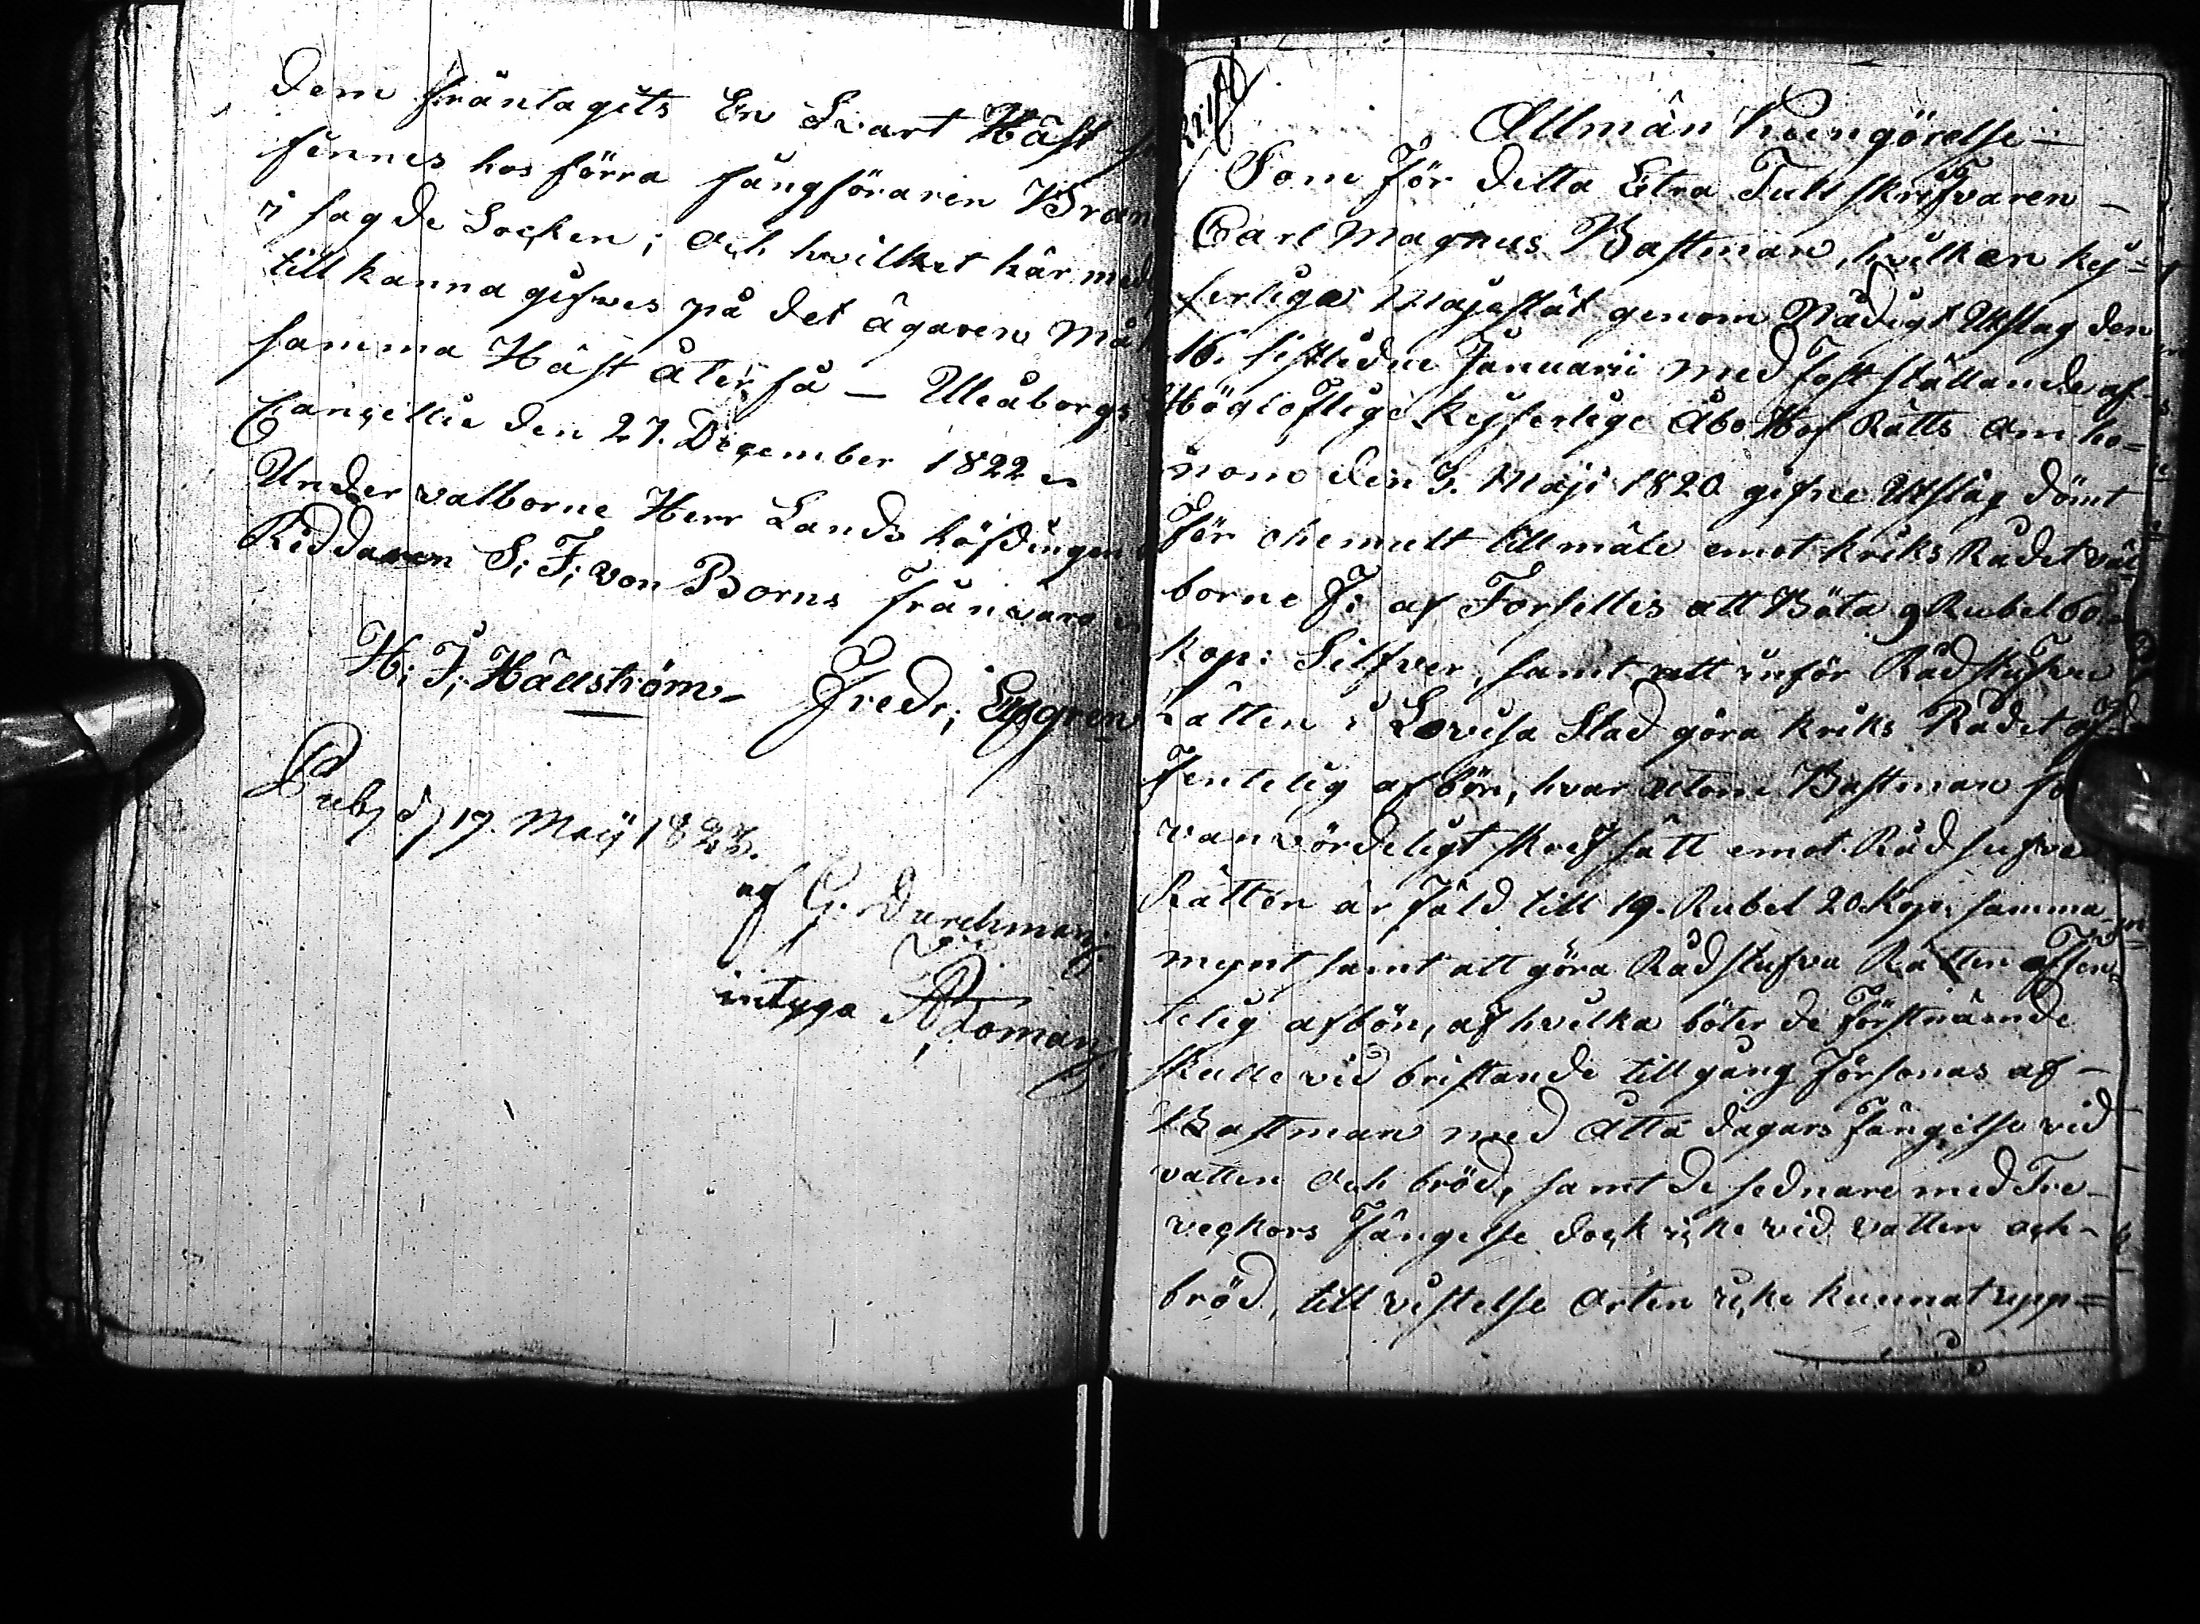 dem fråntagits En Svart Häst
finnes hos förra fångföraren Bran
i sagde Socken; Och hvilket här med
till kanna gifves på det ägaren må
samma Häst åter få — Uleåborgs
Cancellie den 27. December 1822
Under välborne Herr Lands höfdingen
Riddaren S; F; von Borns Frånvaro
H; J; Hällström Fredr; Elfgren
Publ d/ 19. Maij 1823.
af G. Durchman
intyga Roman
Allmän Kungörelse
Som för detta Extra Tull skrifvaren
Carl Magnus Bastman, hvilken kej=
serliga Majestät genom Nådigt Utslag den
16. sistledne Januarii med fast ställande af
Höglöflige Kejserlige Åbo Hof Rätts Om ho=
nom den 3. Maji 1820 gifne Utslag dömt
för ohemult tillmäle emot kriks Rådet väl
borne J: af Forselles att Böta 9 Rubel 60
kop: Silfver, samt att inför Rådstufvu
Rätten i Lovisa Stad göra kriks Rådet of
fentelig afbön, hvar utom Bastman fö
vanvördeligt skrifsätt emot Rådstufvu
Rätten är fäld till 19. Rubel 20. Kop: samma
mynt samt att göra Rådstufvu Rätten offen
telig afbön, af hvilka böter de förstnämde
skulle vid bristande tillgång försonas af
Bastman med Åtta dagars fängelse vid
vatten Och bröd, samt de sednare med Tre
veckors Fängelse dock icke vid vatten och
bröd, till vistelse Orten icke kunnat upp=